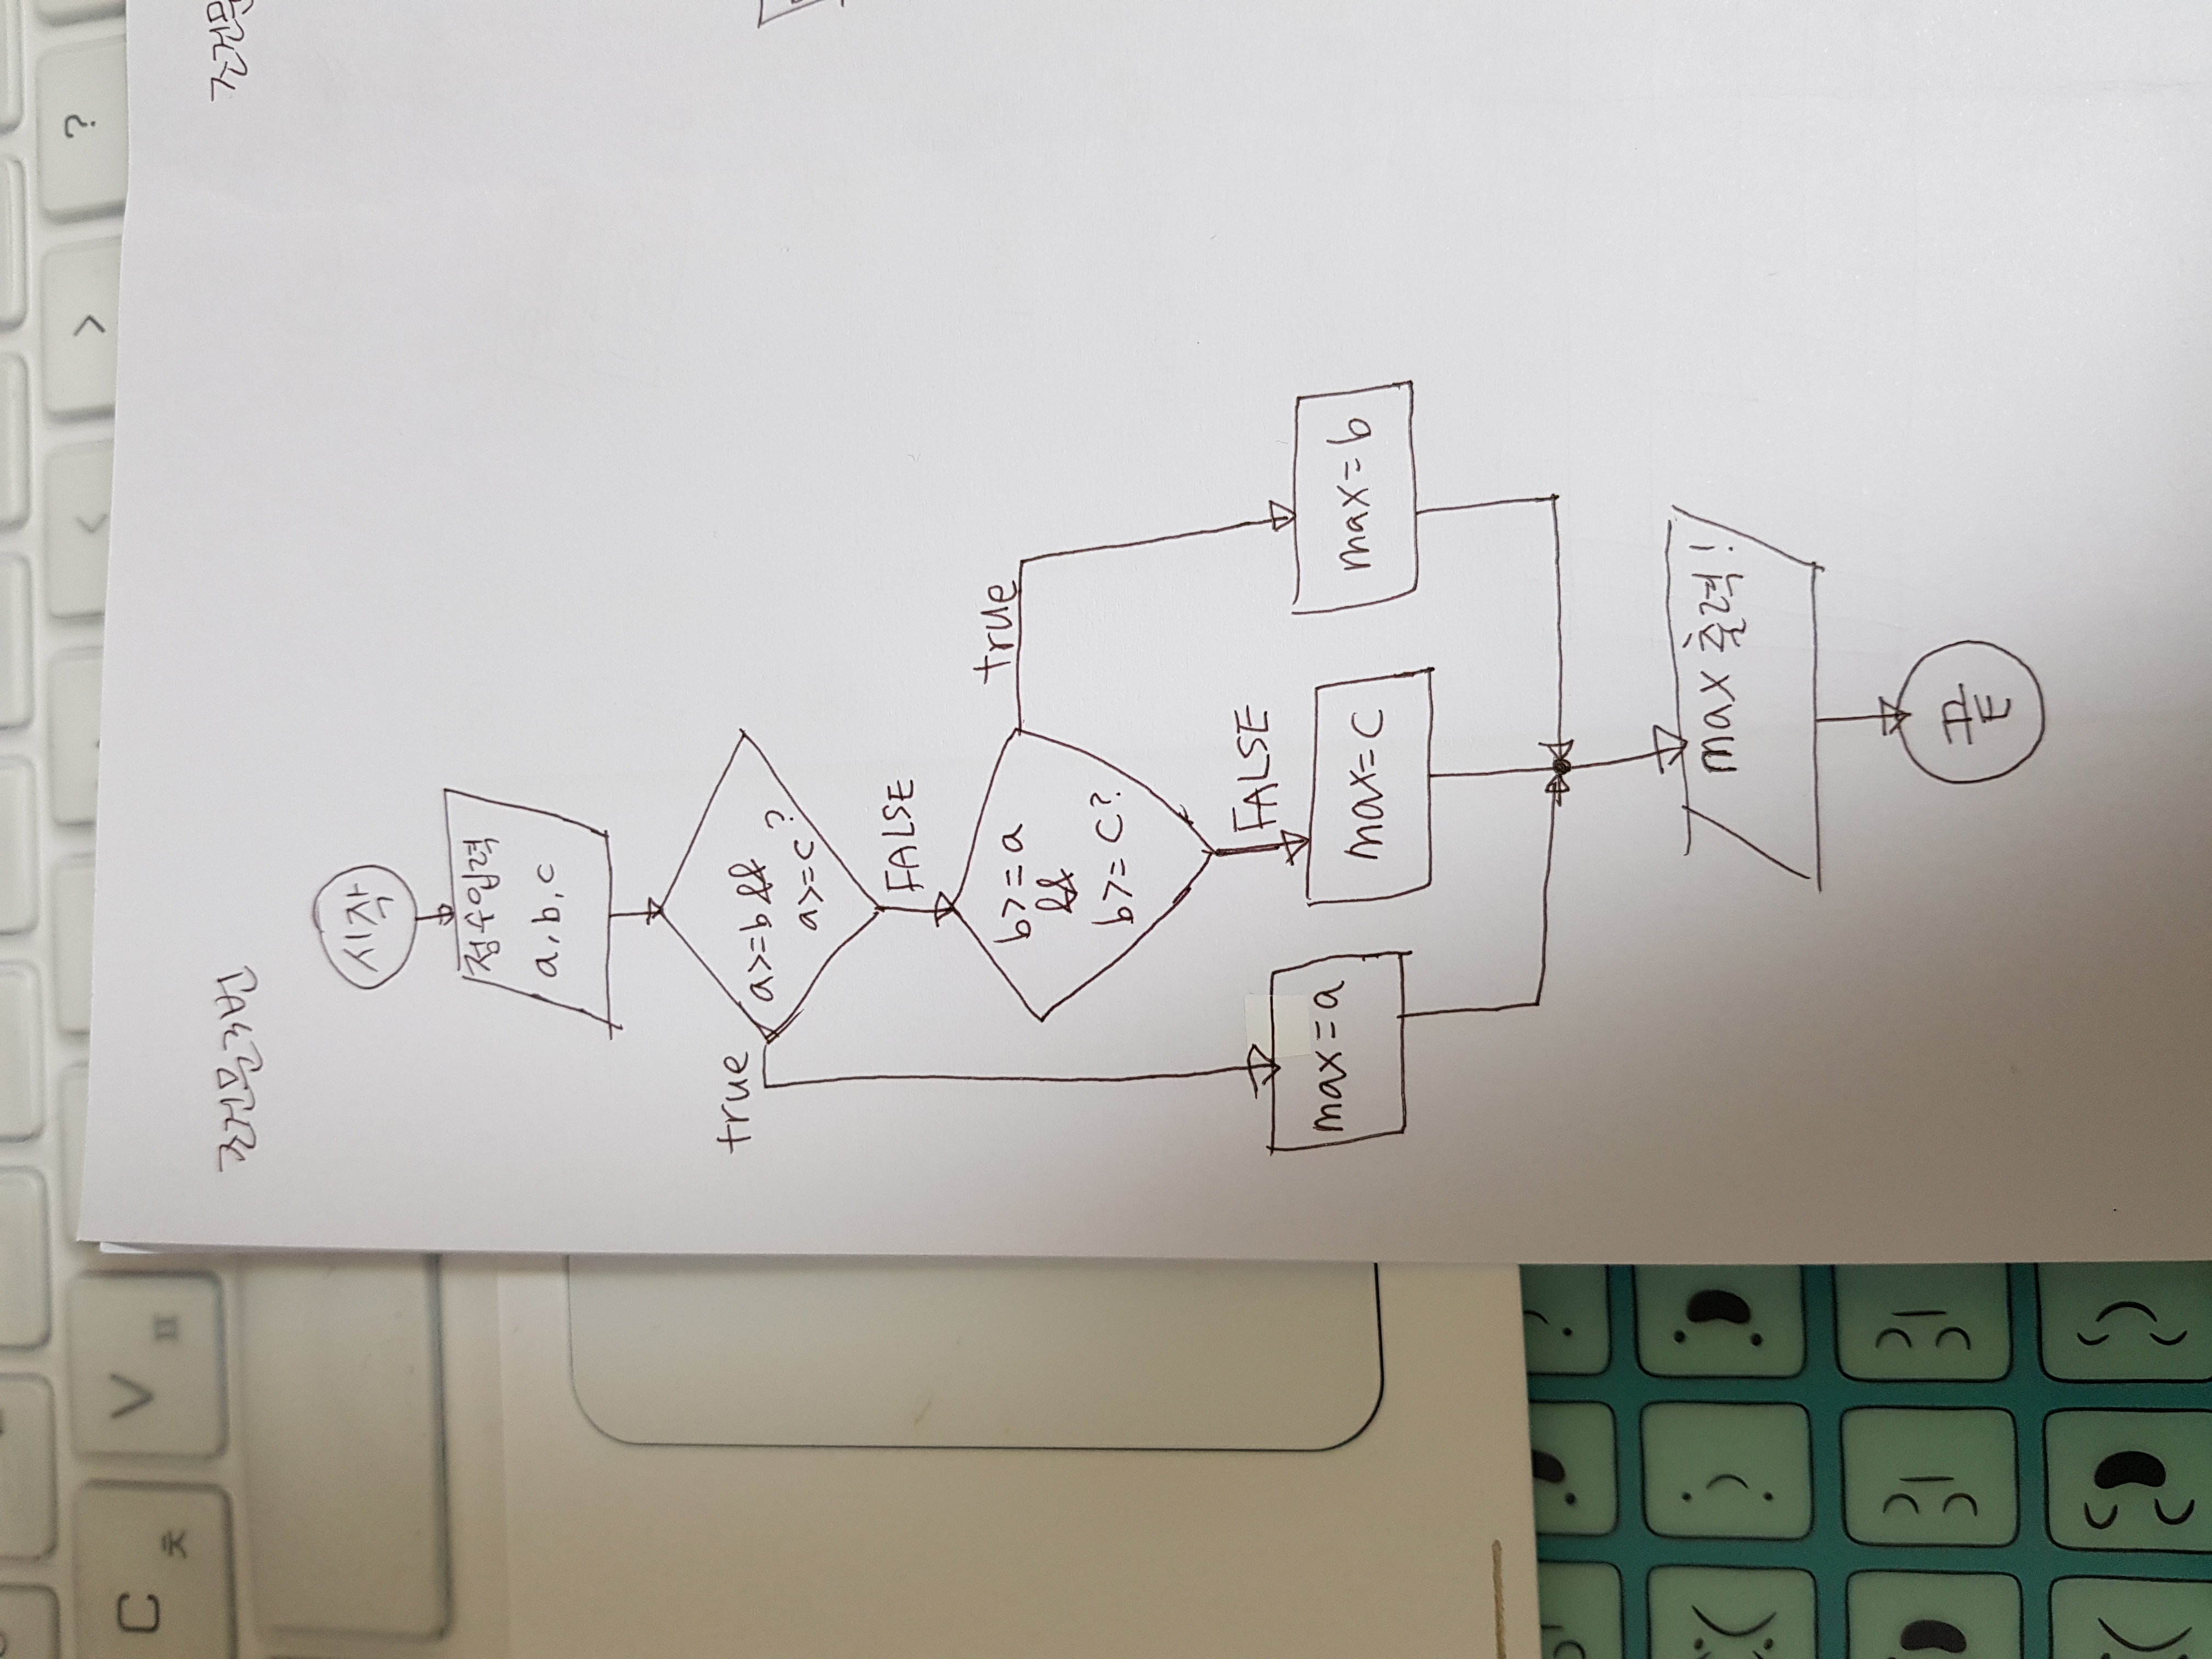 C
ㅊ
V
ㅍ
<
>
?
조건문 3번
조건문
시작
정수입력
a, b, c
true
a>=b &&
a>=c ?
FALSE
b>=a
&&
b>=c?
true
FALSE
max=a
max=c
max=b
max 출력!
끝